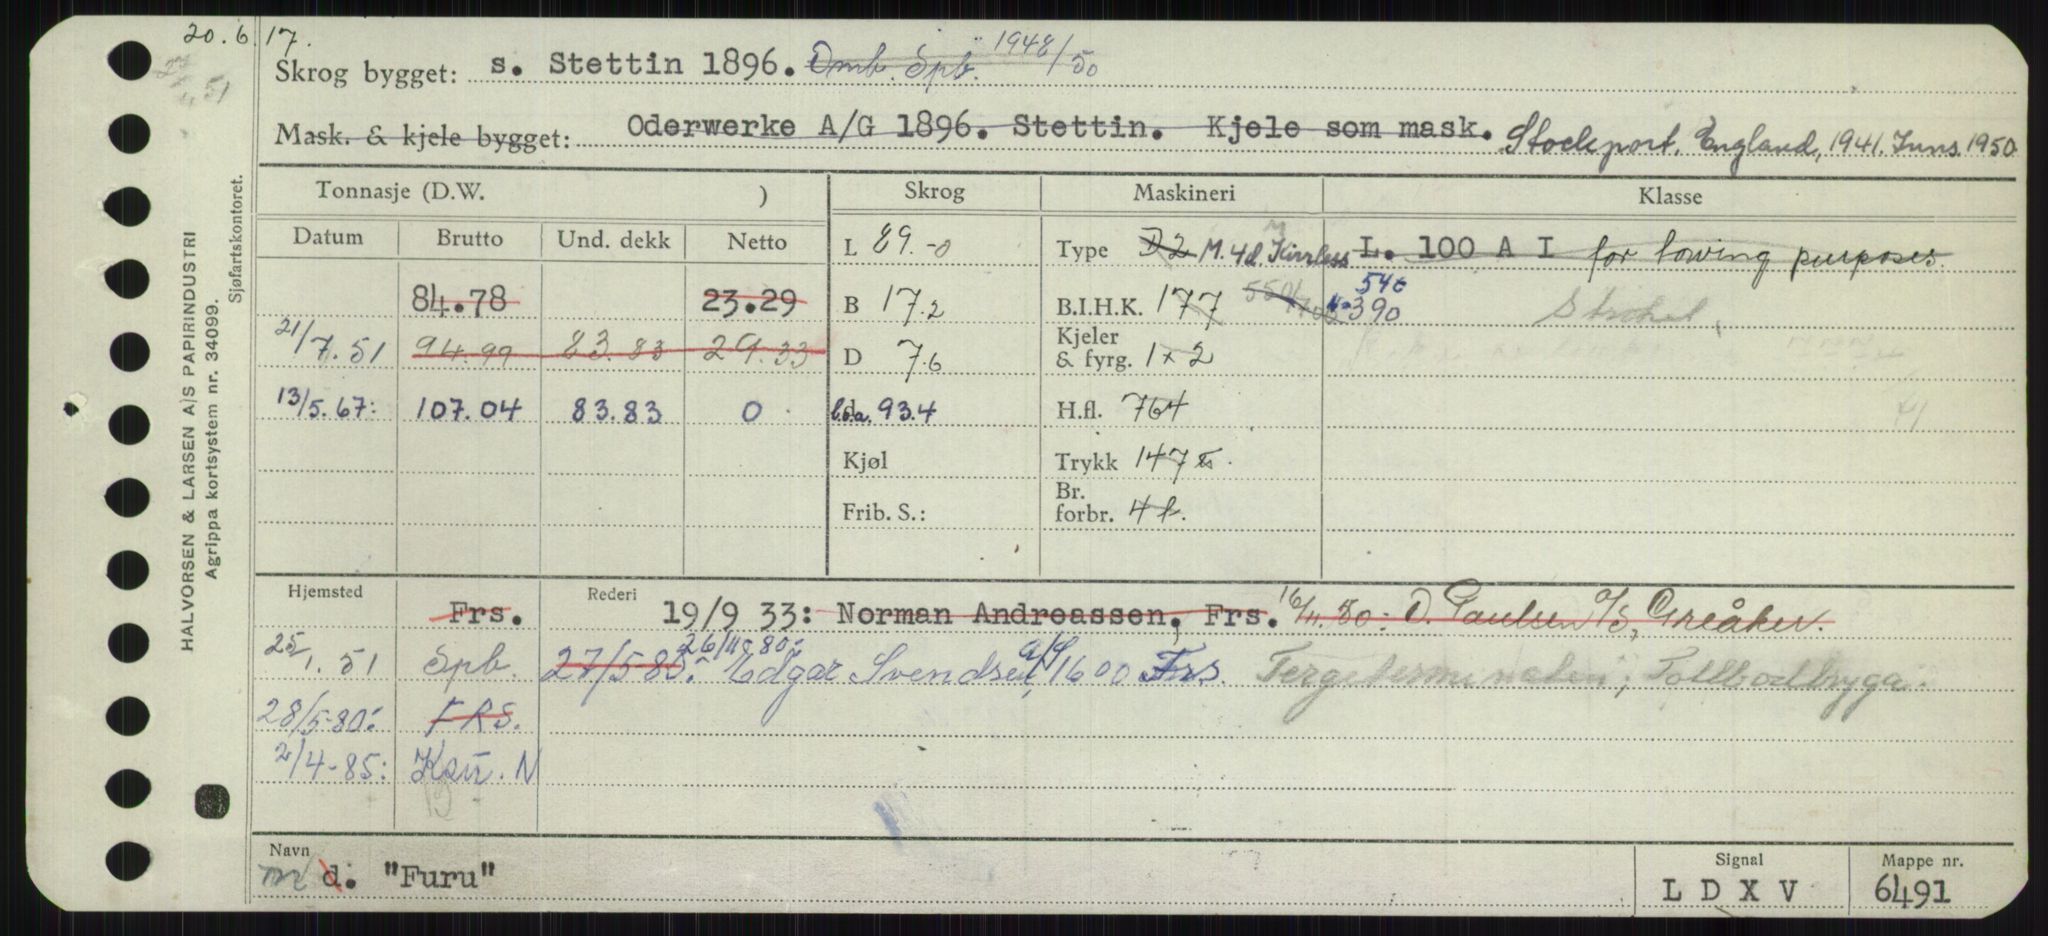 20.6.17.
Skrog bygget: s. Stettin 1896. Omb. Spb. 1948/50
Mask. & kjele bygget: Oderwerke A/G 1896. Stettin. Kjele som mask. Stockport, England, 1941. Inns. 1950
Tonnasje (D.W. ) Skrog Maskineri Klasse
Datum Brutto Und. dekk Netto L 89.-0 Type D2 M. 4d. L. 100 A I for towing purposes
84.78 23.29 B 17.2 B.I.H.K. 177 390 540
21/7.51 94.99 83.83 29.33 D 7.6 Kjeler & fyrg. 1 x 2
13/5.67: 107.04 83.83 0 d l.o.a. 93.4 H.fl. 764
Kjøl Trykk 147
Frib. S.: Br. forbr. 4 t.
Hjemsted Rederi
Frs. 19/9 33: Norman Andreassen, Frs. 16/11.50: D. Paulsen A/S, Greåker.
25/1.51 Spb. 27/5-80: 26/11-80: Edgar Svendsen A/S 1600 Frs. Fergeterminalen, Tollbodbrygga.
28/5-80: FRS.
2/4-85: N
Navn Signal Mappe nr.
m d. "Furu" L D X V 6491
HALVORSEN & LARSEN A/S PAPIRINDUSTRI
Agrippa kortsystem nr. 34099.
Sjøfartskontoret.